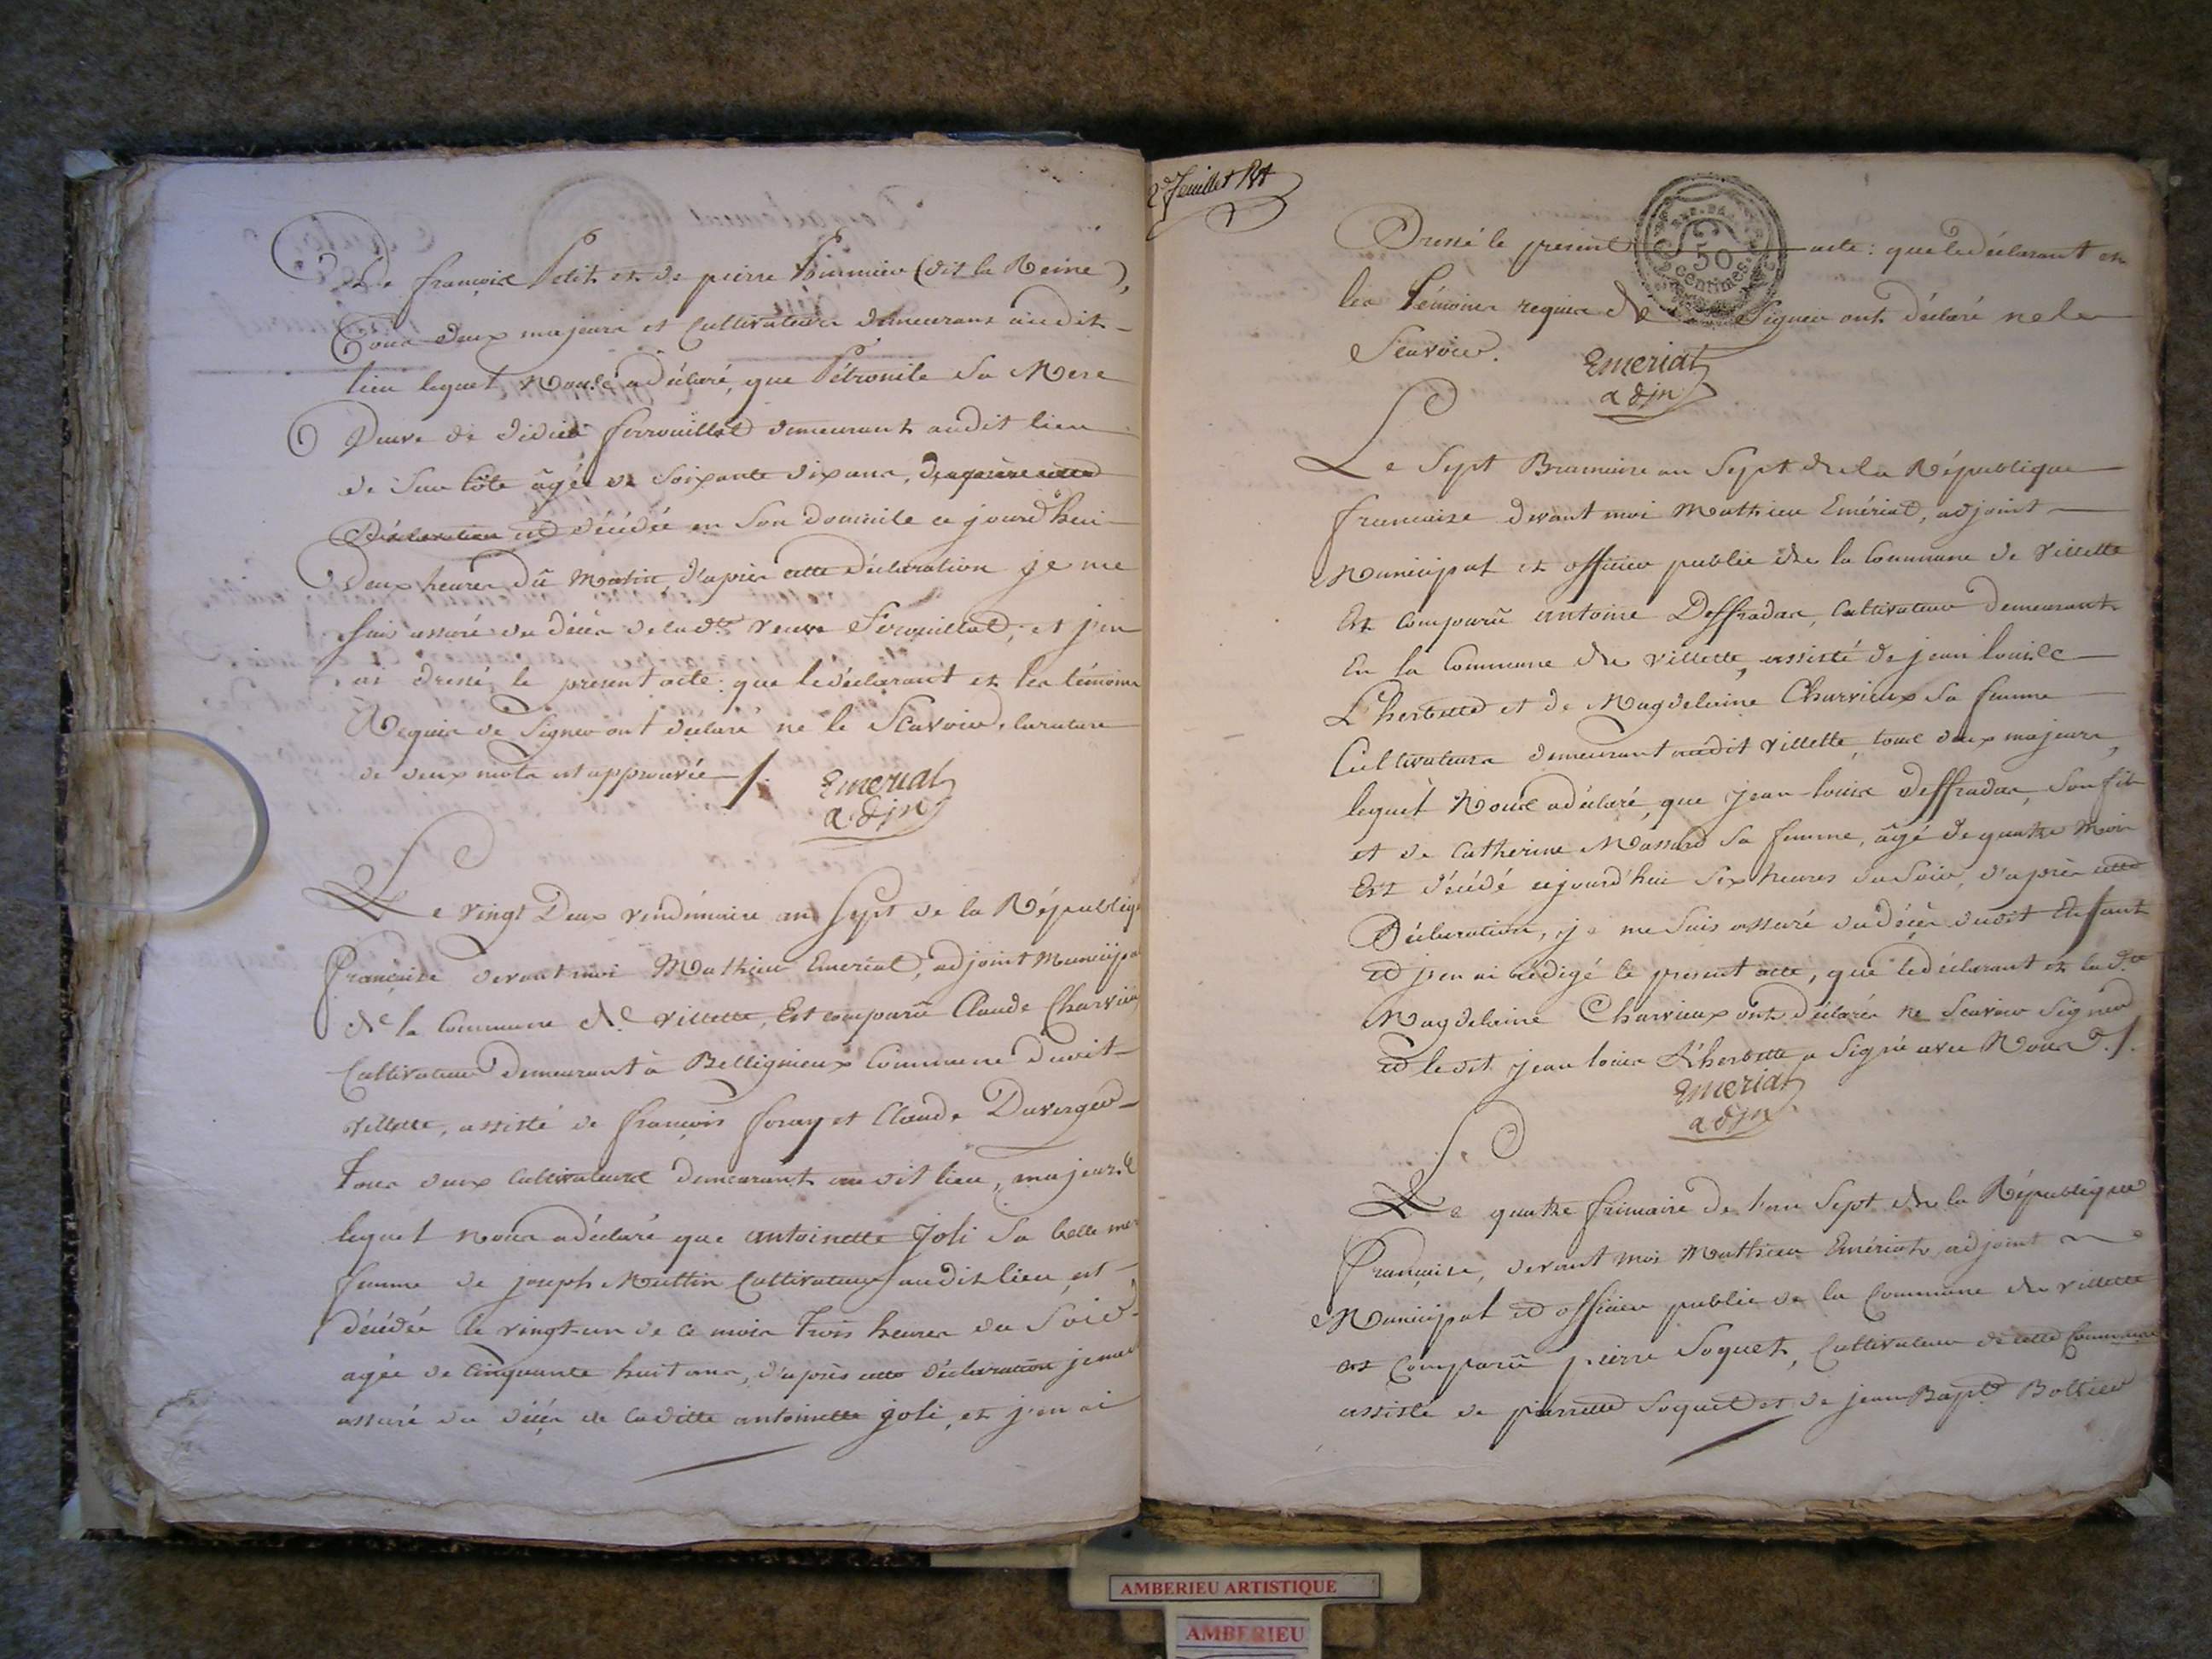 De françois Petit et de pierre (dit la Reine),
Tous deux majeurs et Cultivateurs demeurans audit
lieu lequel Nous a déclaré, que Pétronile Sa Mere
Veuve de didier ferrouillat demeurant audit lieu
de Sur Côte âgée de Soixante dix ans, d'après cette
Déclaration est décédée en Son domicile ce jourd'hui
Deux heures dû Matin, d'après cette déclaration je me
suis assuré du décès de la dte veuve Ferrouillat, et j'en
ai dressé le present acte : que le déclarant et les témoins
Requis de Signer ont déclaré ne le Scavoir, la rature
de deux mots est approuvée /.
Emeriat
adjn
Le vingt Deux vendémiaire an Sept de la Républiq
Française devant moi Mathieu Emeriat, adjoint Municipa
de la Commune de villette, Est comparû Claude Charvieu
Cultivateur Demeurant à Bellignieux Commune dudit
villette, assisté de françois foray et Claude Duverger
Tous deux Cultivateurs demeurant audit lieu, majeurs
lequel nous a déclaré que antoinette Joli Sa belle mer
femme de joseph Muttin Cultivateur audit lieu, est
décédée le vingt-un de ce mois Trois heures du Soir
agée de Cinquante huit ans, d'après cette déclaration je me
assuré du décès de ladite antoinette joli, et j'en ai
2e feuillet
Dressé le present acte : que le déclarant et
les Témoins requis de Signer ont déclaré ne le
Scavoir.
Emeriat
adjn
Le Sept Brumaire an Sept de la République
francaise devant moi Mathieu Emériat, adjoint
Municipal et officier public de la Commune de Villette
Est Comparû antoine Deffradas, Cultivateur demeurant
En la Commune de villette, assisté de jean louis
L'herbette et de Magdelaine Charvieux Sa femme
Cultivateurs demeurant audit villette, tous deux majeurs,
lequel Nous a déclaré, que jean-louis deffradas, Son fils
et de Catherine Massard Sa femme, âgé de quatre Mois
Est décédé cejourd'hui Six heures du Soir, d'après cette
Déclaration, je me Suis assuré du décès dudit Enfant
et j'en ai rédigé le present acte, que le déclarant et la dte
Magdelaine Charvieux ont déclarés ne Scavoir Signer
et le dit jean louis L'herbette a Signé avec Nous /.
Emeriat
adjn
Le quatre frimaire de l'an Sept de la République
Française, devant moi Mathieu Emériat, adjoint
Municipal et officier public de la Commune de villette
est Comparû pierre Soquet, Cultivateur de cette Commune
assisté de pierrette Soquet et de jean Bapte Bollier
50
centimes
AMBERIEU ARTISTIQUE
AMBERIEU